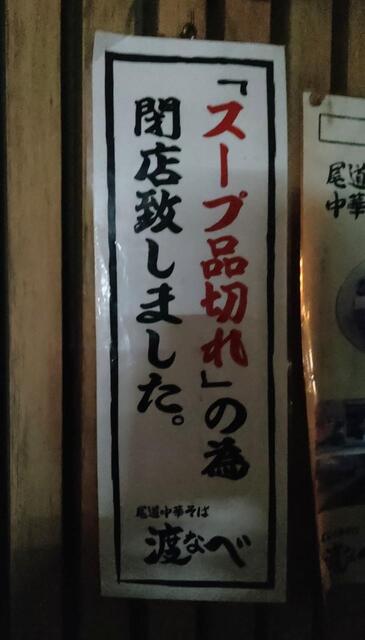 「スープ品切れ」の為
閉店致しました。
尾道中華そば
渡なべ
尾道
中華
渡な